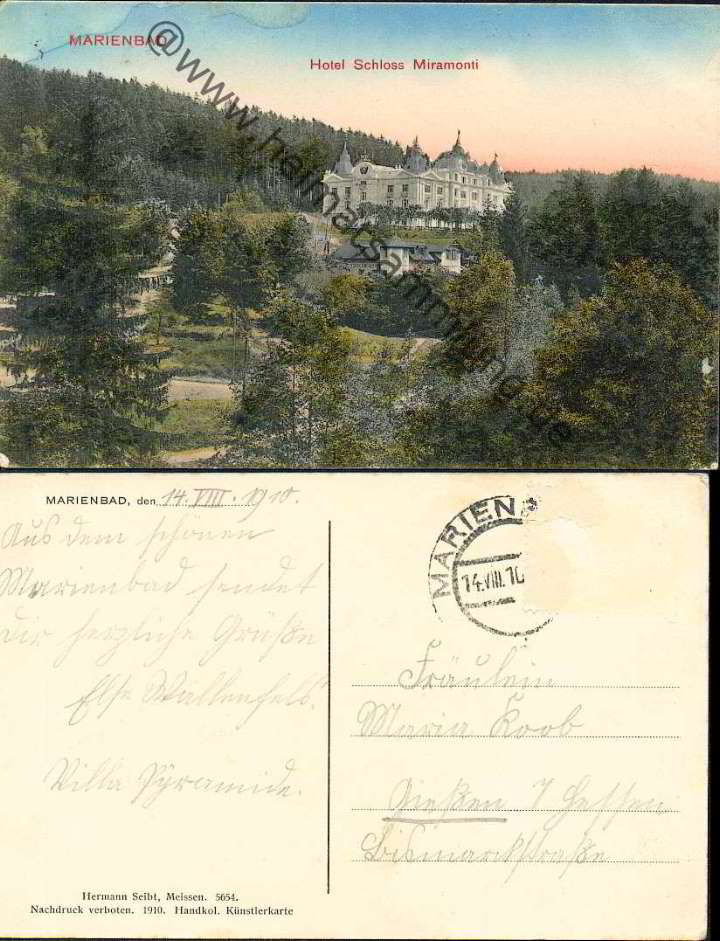 MARIENBAD
Hotel Schloss Miramonti
@www.heimatsammlung.de
MARIENBAD, den 14. VIII. 1910.
Aus dem schönen
Marienbad sendet
Dir herzliche Grüße
Else Wallenfels.
Villa Pyramide.
MARIENB
14.VIII.10
Fräulein
Maria Koob
Gießen / Hessen
Bismarckstraße
Hermann Seibt, Meissen. 5654.
Nachdruck verboten. 1910. Handkol. Künstlerkarte